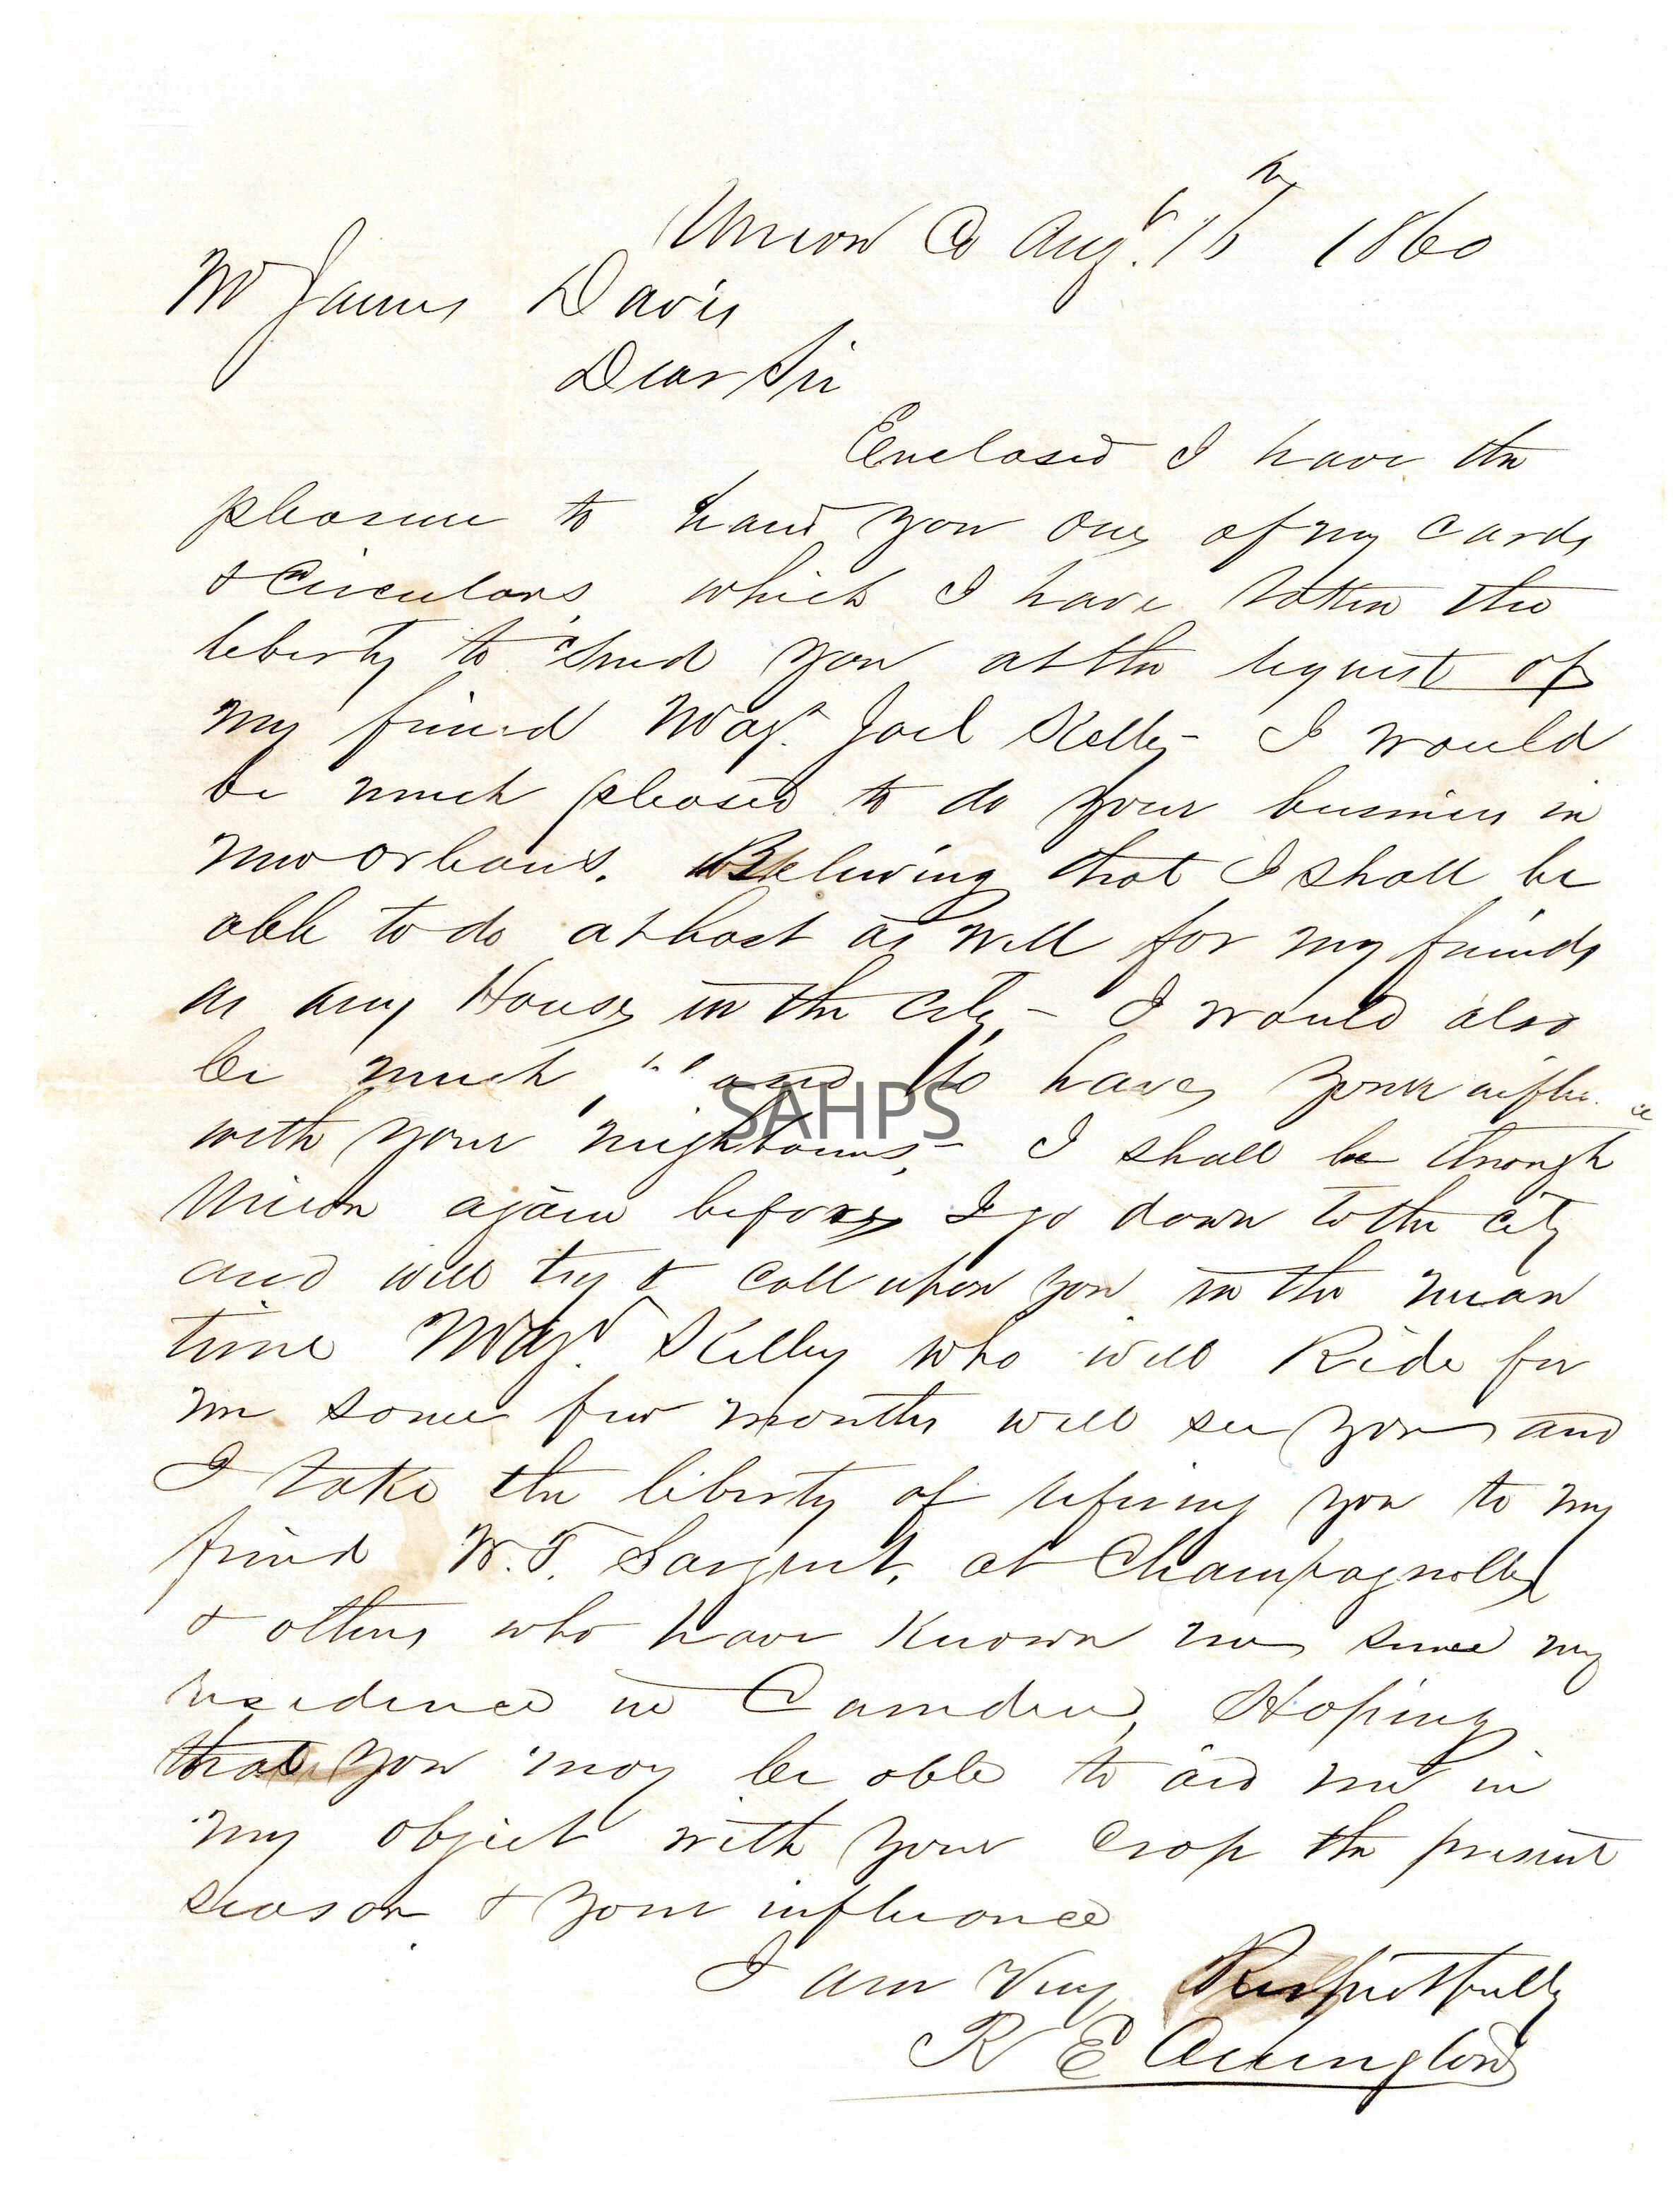 Union Co Augt. 16th 1860
Mr James Davis
Dear Sir
Enclosed I have the
pleasure to hand you one of my cards
& Circulars, which I have taken the
liberty to send you at the request of
my friend Majr. Joel Kelly - I would
be much pleased to do your business in
New Orleans. Believing that I shall be
able to do at least as well for my friends
as any House in the City, - I would also
be much to have your influence
SAHPS
with your neighbours, - I shall be through
Union again before I go down to the city
and will try & call upon you in the mean
time Majr. Kelly who will Ride for
me some few months will see you and
I take the liberty of refering you to my
friend W. T. Sargent, at Champagnolle
& others who have known me since my
residence in Camden, Hoping
that you may be able to aid me in
my object with your crop the present
season & your influence
I am Very Respectfully
R E